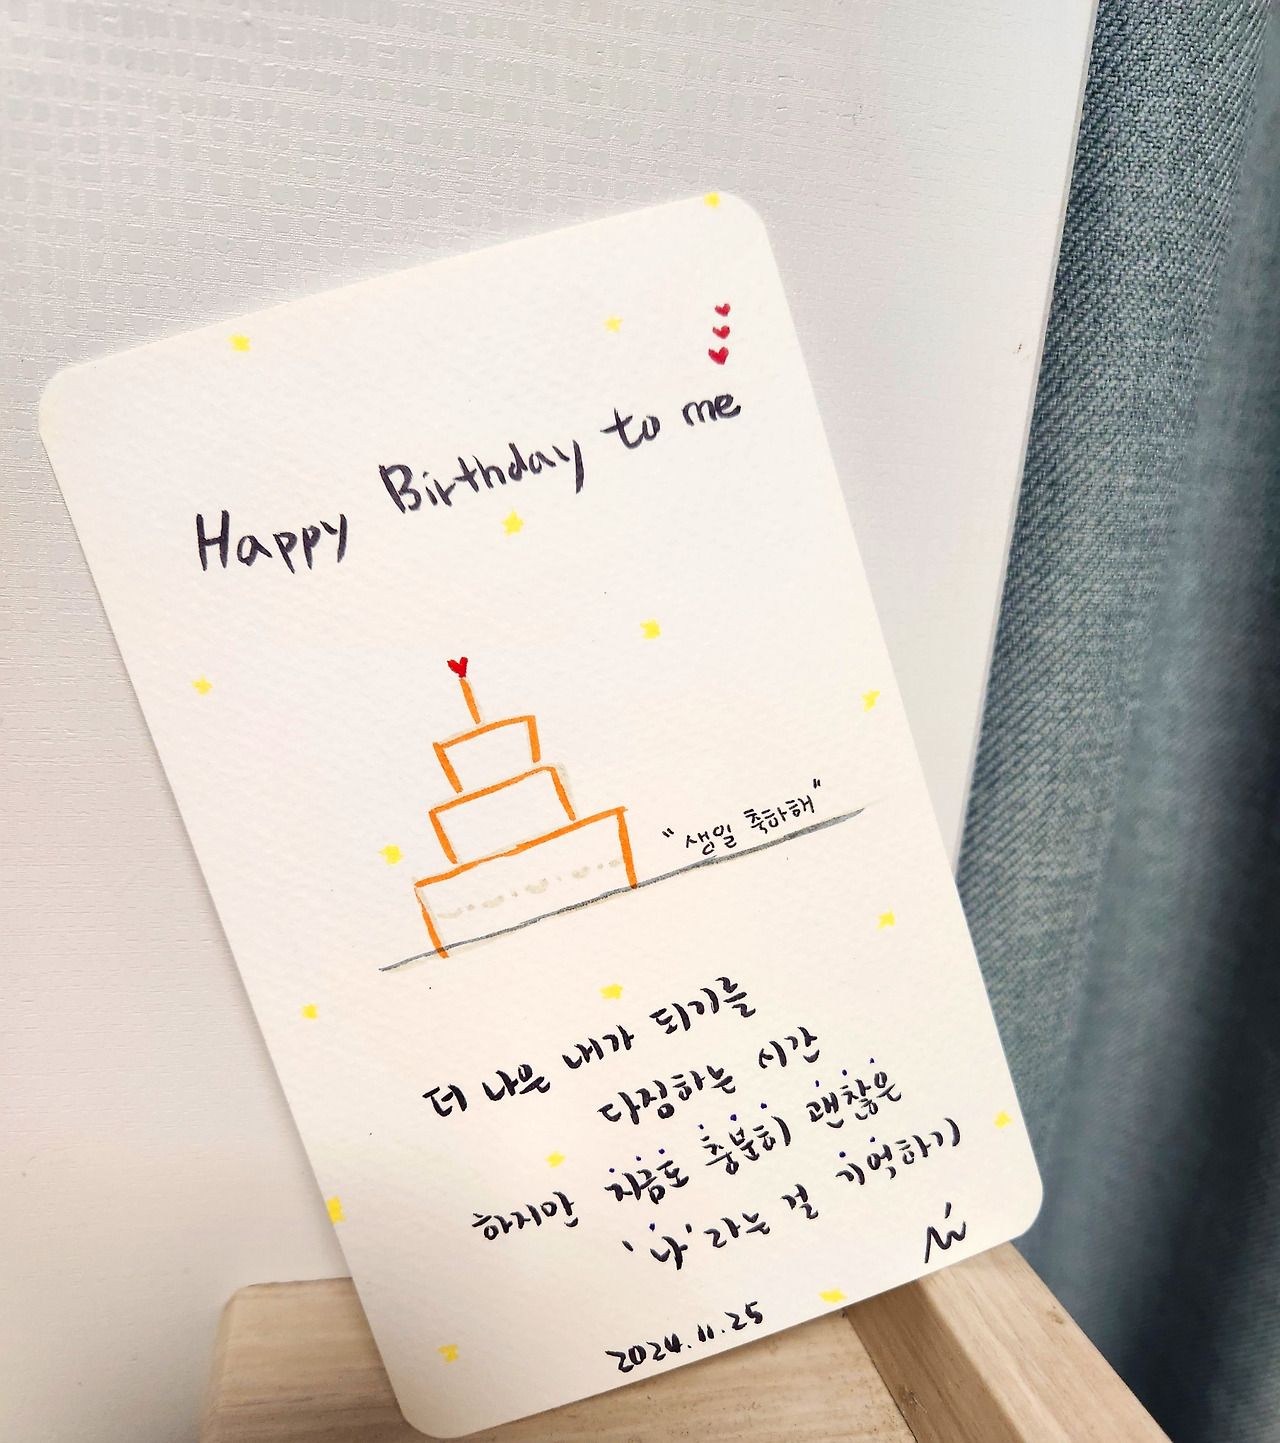 Happy Birthday to me
"생일 축하해"
더 나은 내가 되기를
다짐하는 시간
하지만 지금도 충분히 괜찮은
'나'라는 걸 기억하기
2024.11.25